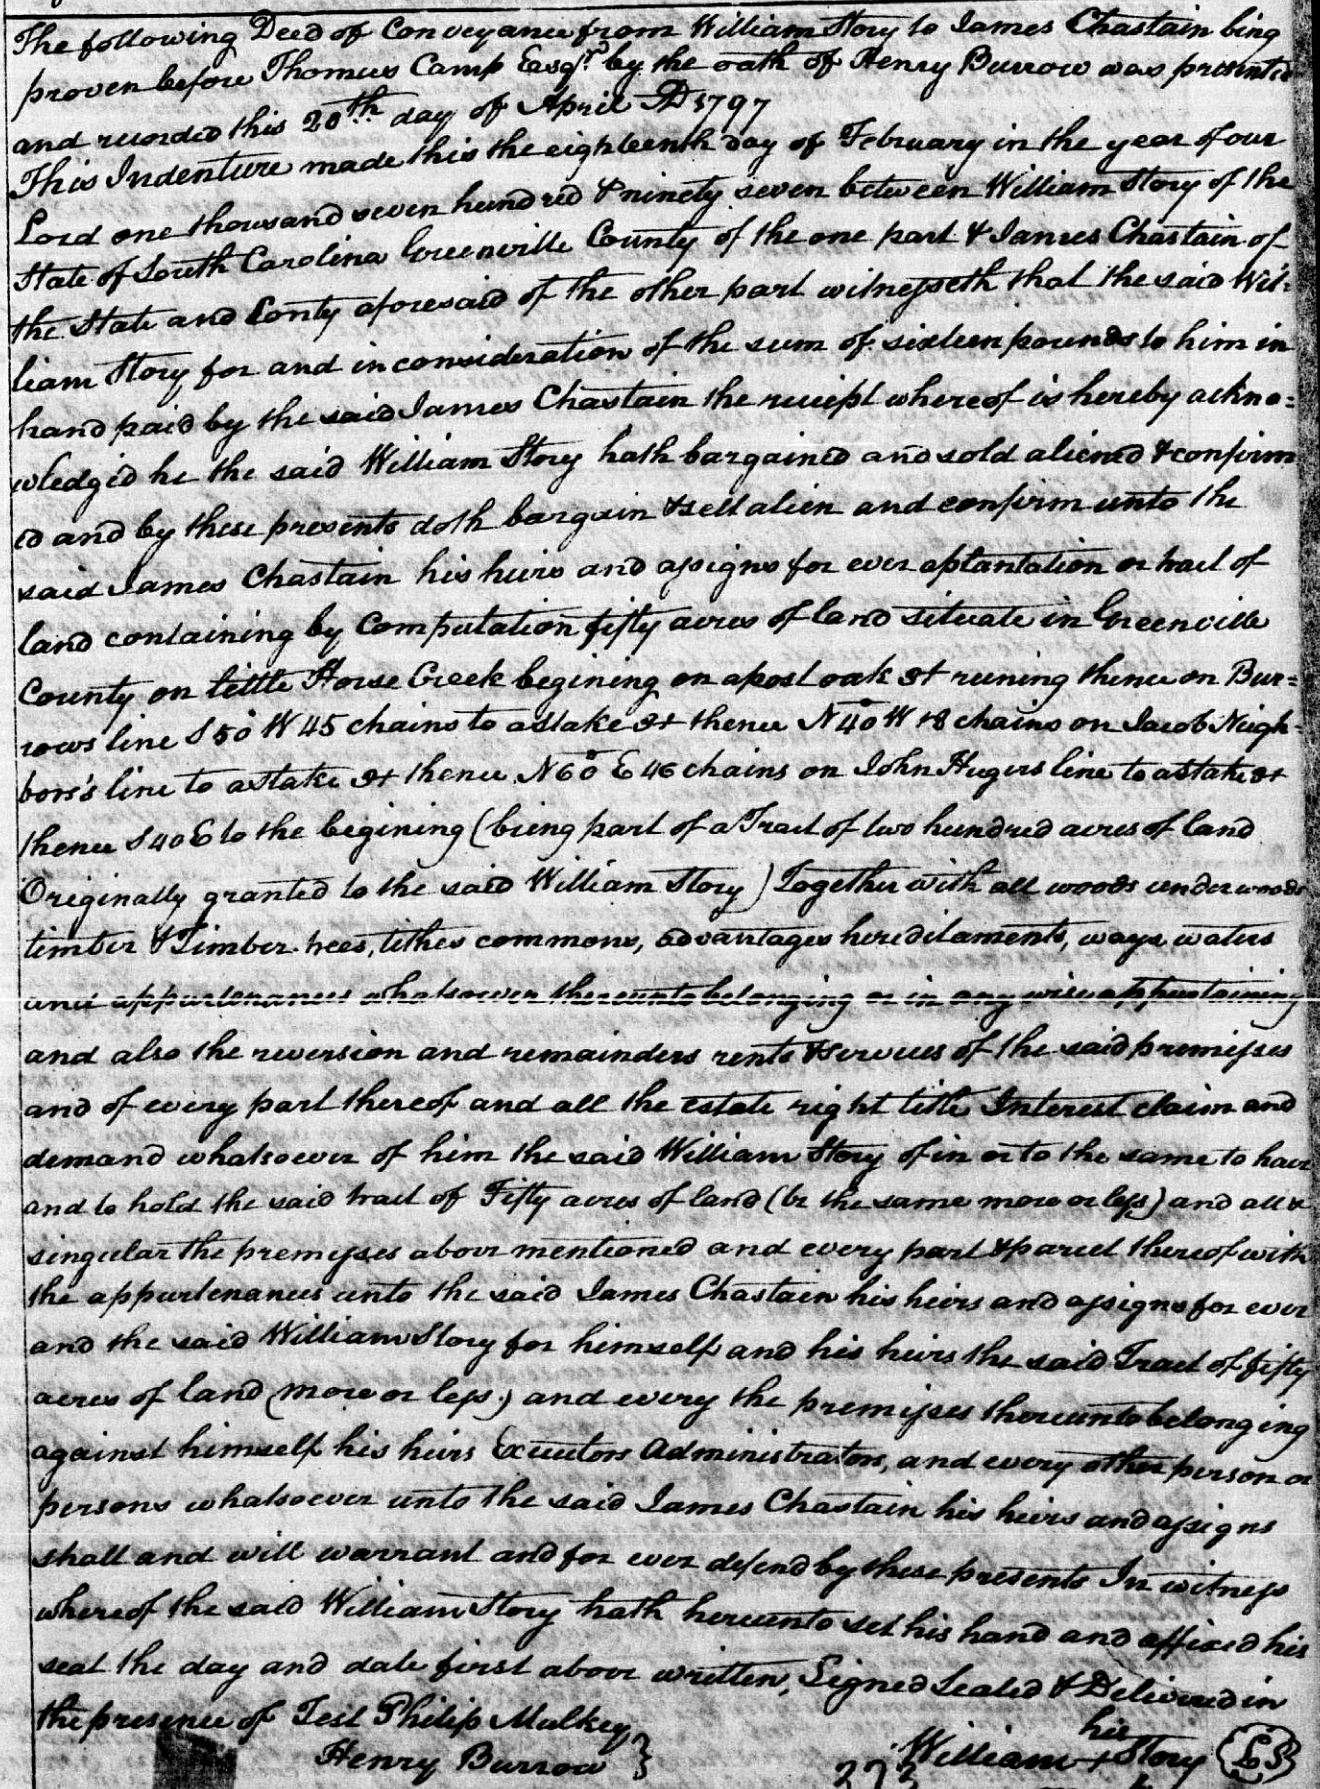 The following Deed of Conveyance from William Story to James Chastain bing
proven before Thomas Camp Esqr. by the oath of Henry Burrow was presented
and recorded this 20th day of April AD 1797
This Indenture made this the eighteenth day of February in the year of our
Lord one thousand seven hundred & ninety seven between William Story of the
State of South Carolina Greenville County of the one part & James Chastain of
the State and Conty aforesaid of the other part witnesseth that the said Wil=
liam Story for and in consideration of the sum of sixteen pounds to him in
hand paid by the said James Chastain the reciept whereof is hereby ackno=
wledged he the said William Story hath bargained and sold aliened & confirm
ed and by these presents doth bargain & sell alien and confirm unto the
said James Chastain his heirs and assigns for ever a plantation or tract of
land containing by Computation fifty acres of land situate in Greenville
County on little Horse Creek begining on a post oak 3+ runing thence on Bur=
rows line S 50 W 45 chains to a stake 3+ thence N 40 W 18 chains on Jacob Neigh=
bors's line to a stake 3+ thence N 60 E 46 chains on John Hugers line to a stake 3+
thence S 40 E to the begining (being part of a Tract of two hundred acres of land
Originally granted to the said William Story) Together with all woods underwoods
timber & Timber trees, tithes commons, advantages hereditaments, ways waters
and appurtenances whatsoever thereunto belonging or in any wise appurtaining
and also the reversion and remainders rents & services of the said premisses
and of every part thereof and all the estate right title Interest claim and
demand whatsoever of him the said William Story of in or to the same to have
and to hold the said tract of Fifty acres of land (be the same more or less) and all &
singular the premisses above mentioned and every part & parcel thereof with
the appurtenances unto the said James Chastain his heirs and assigns for ever
and the said William Story for himself and his heirs the said Tract of fifty
acres of land (more or less) and every the premisses thereunto belonging
against himself his heirs Executors Administrators, and every other person or
persons whatsoever unto the said James Chastain his heirs and assigns
shall and will warrant and for ever defend by these presents In witness
whereof the said William Story hath hereunto set his hand and affixed his
seal the day and date first above written, Signed Sealed & Delivered in
the presence of Test Philip Mulkey
Henry Burrow }
his
William + Story (LS)